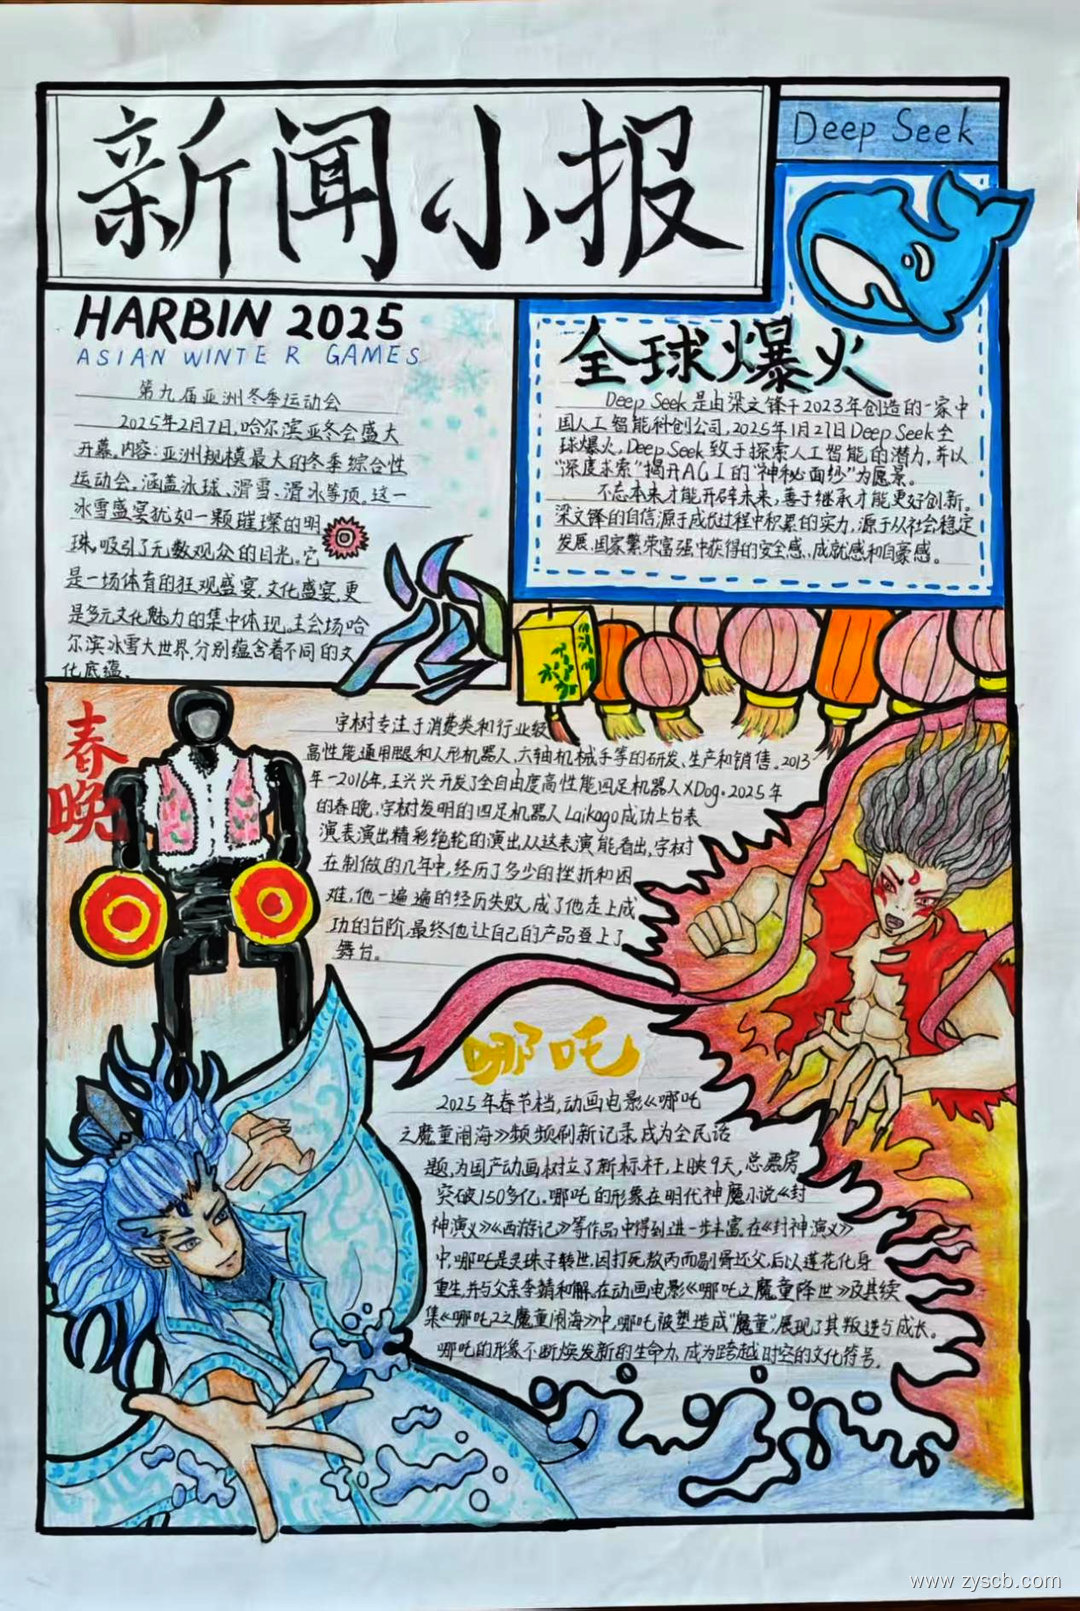 新闻小报
Deep Seek
HARBIN 2025
ASIAN WINTER GAMES
第九届亚洲冬季运动会
2025年2月7日,哈尔滨亚冬会盛大
开幕,内容:亚洲规模最大的冬季综合性
运动会,涵盖冰球、滑雪、滑冰等项。这一
冰雪盛宴犹如一颗璀璨的明
珠,吸引了无数观众的目光。它
是一场体育的狂观盛宴,文化盛宴,更
是多元文化魅力的集中体现。主会场哈
尔滨冰雪大世界,分别蕴含着不同的文
化底蕴。
全球爆火
Deep Seek是由梁文锋于2023年创造的一家中
国人工智能科创公司,2025年1月27日Deep Seek全
球爆火,Deep Seek致于探索人工智能的潜力,并以
“深度求索”揭开AGI的“神秘面纱”为愿景。
不忘本来才能开辟未来,善于继承才能更好创新。
梁文锋的自信,源于成长过程中积累的实力,源于从社会稳定
发展、国家繁荣富强中获得的安全感、成就感和自豪感。
春晚
宇树专注于消费类和行业级
高性能通用腿和人形机器人、六轴机械手等的研发、生产和销售。2013
年-2016年,王兴兴开发了全自由度高性能四足机器人XDog。2025年
的春晚,宇树发明的四足机器人Laikago成功上台表
演,表演出精彩绝轮的演出从这表演能看出,宇树
在制做的几年中,经历了多少的挫折和困
难,他一遍遍的经历失败,成了他走上成
功的台阶,最终他让自己的产品登上了
舞台。
哪吒
2025年春节档,动画电影《哪吒
之魔童闹海》频频刷新记录,成为全民话
题,为国产动画树立了新标杆,上映9天,总票房
突破150多亿。哪吒的形象在明代神魔小说《封
神演义》《西游记》等作品中得到进一步丰富,在《封神演义》
中,哪吒是灵珠子转世,因打死敖丙而剔骨还父,后以莲花化身
重生,并与父亲李靖和解。在动画电影《哪吒之魔童降世》及其续
集《哪吒2之魔童闹海》中,哪吒被塑造成“魔童”,展现了其叛逆与成长。
哪吒的形象不断焕发新的生命力,成为跨越时空的文化符号。
www.zyscb.com